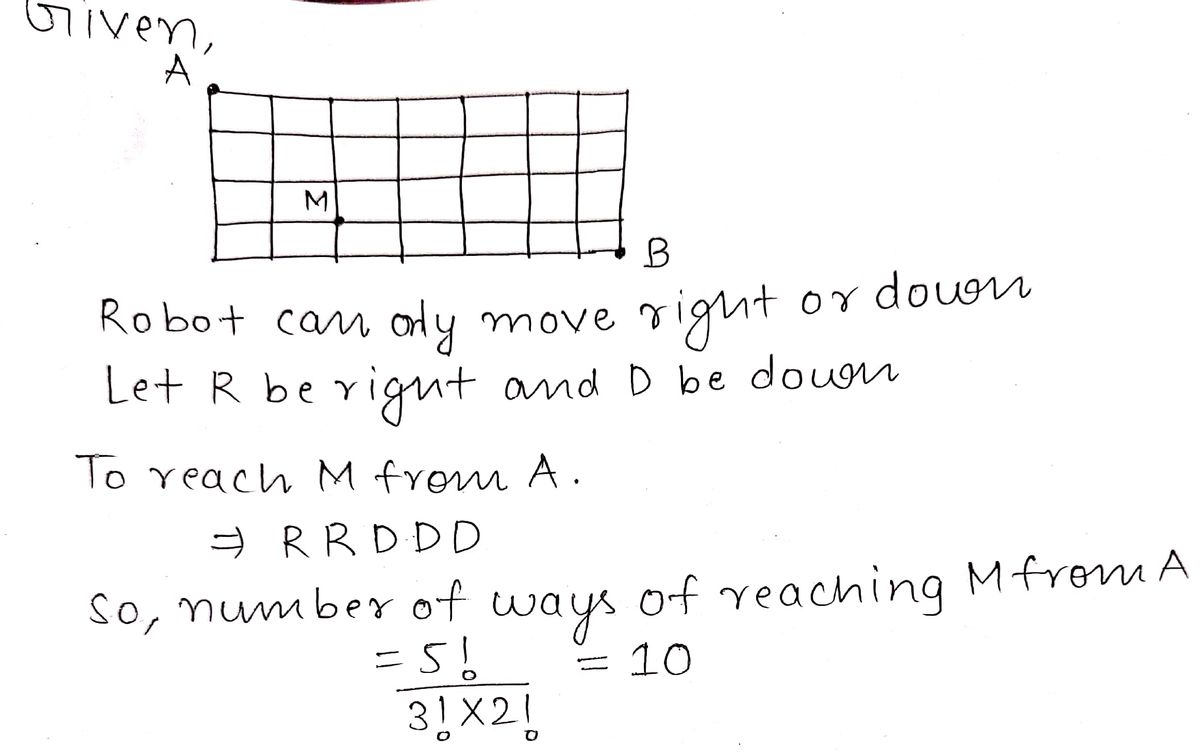 Given,
A
M
B
Robot can only move right or down
Let R be right and D be down
To reach M from A.
⇒ RRDDD
So, number of ways of reaching M from A
= 5! / 3! X 2! = 10